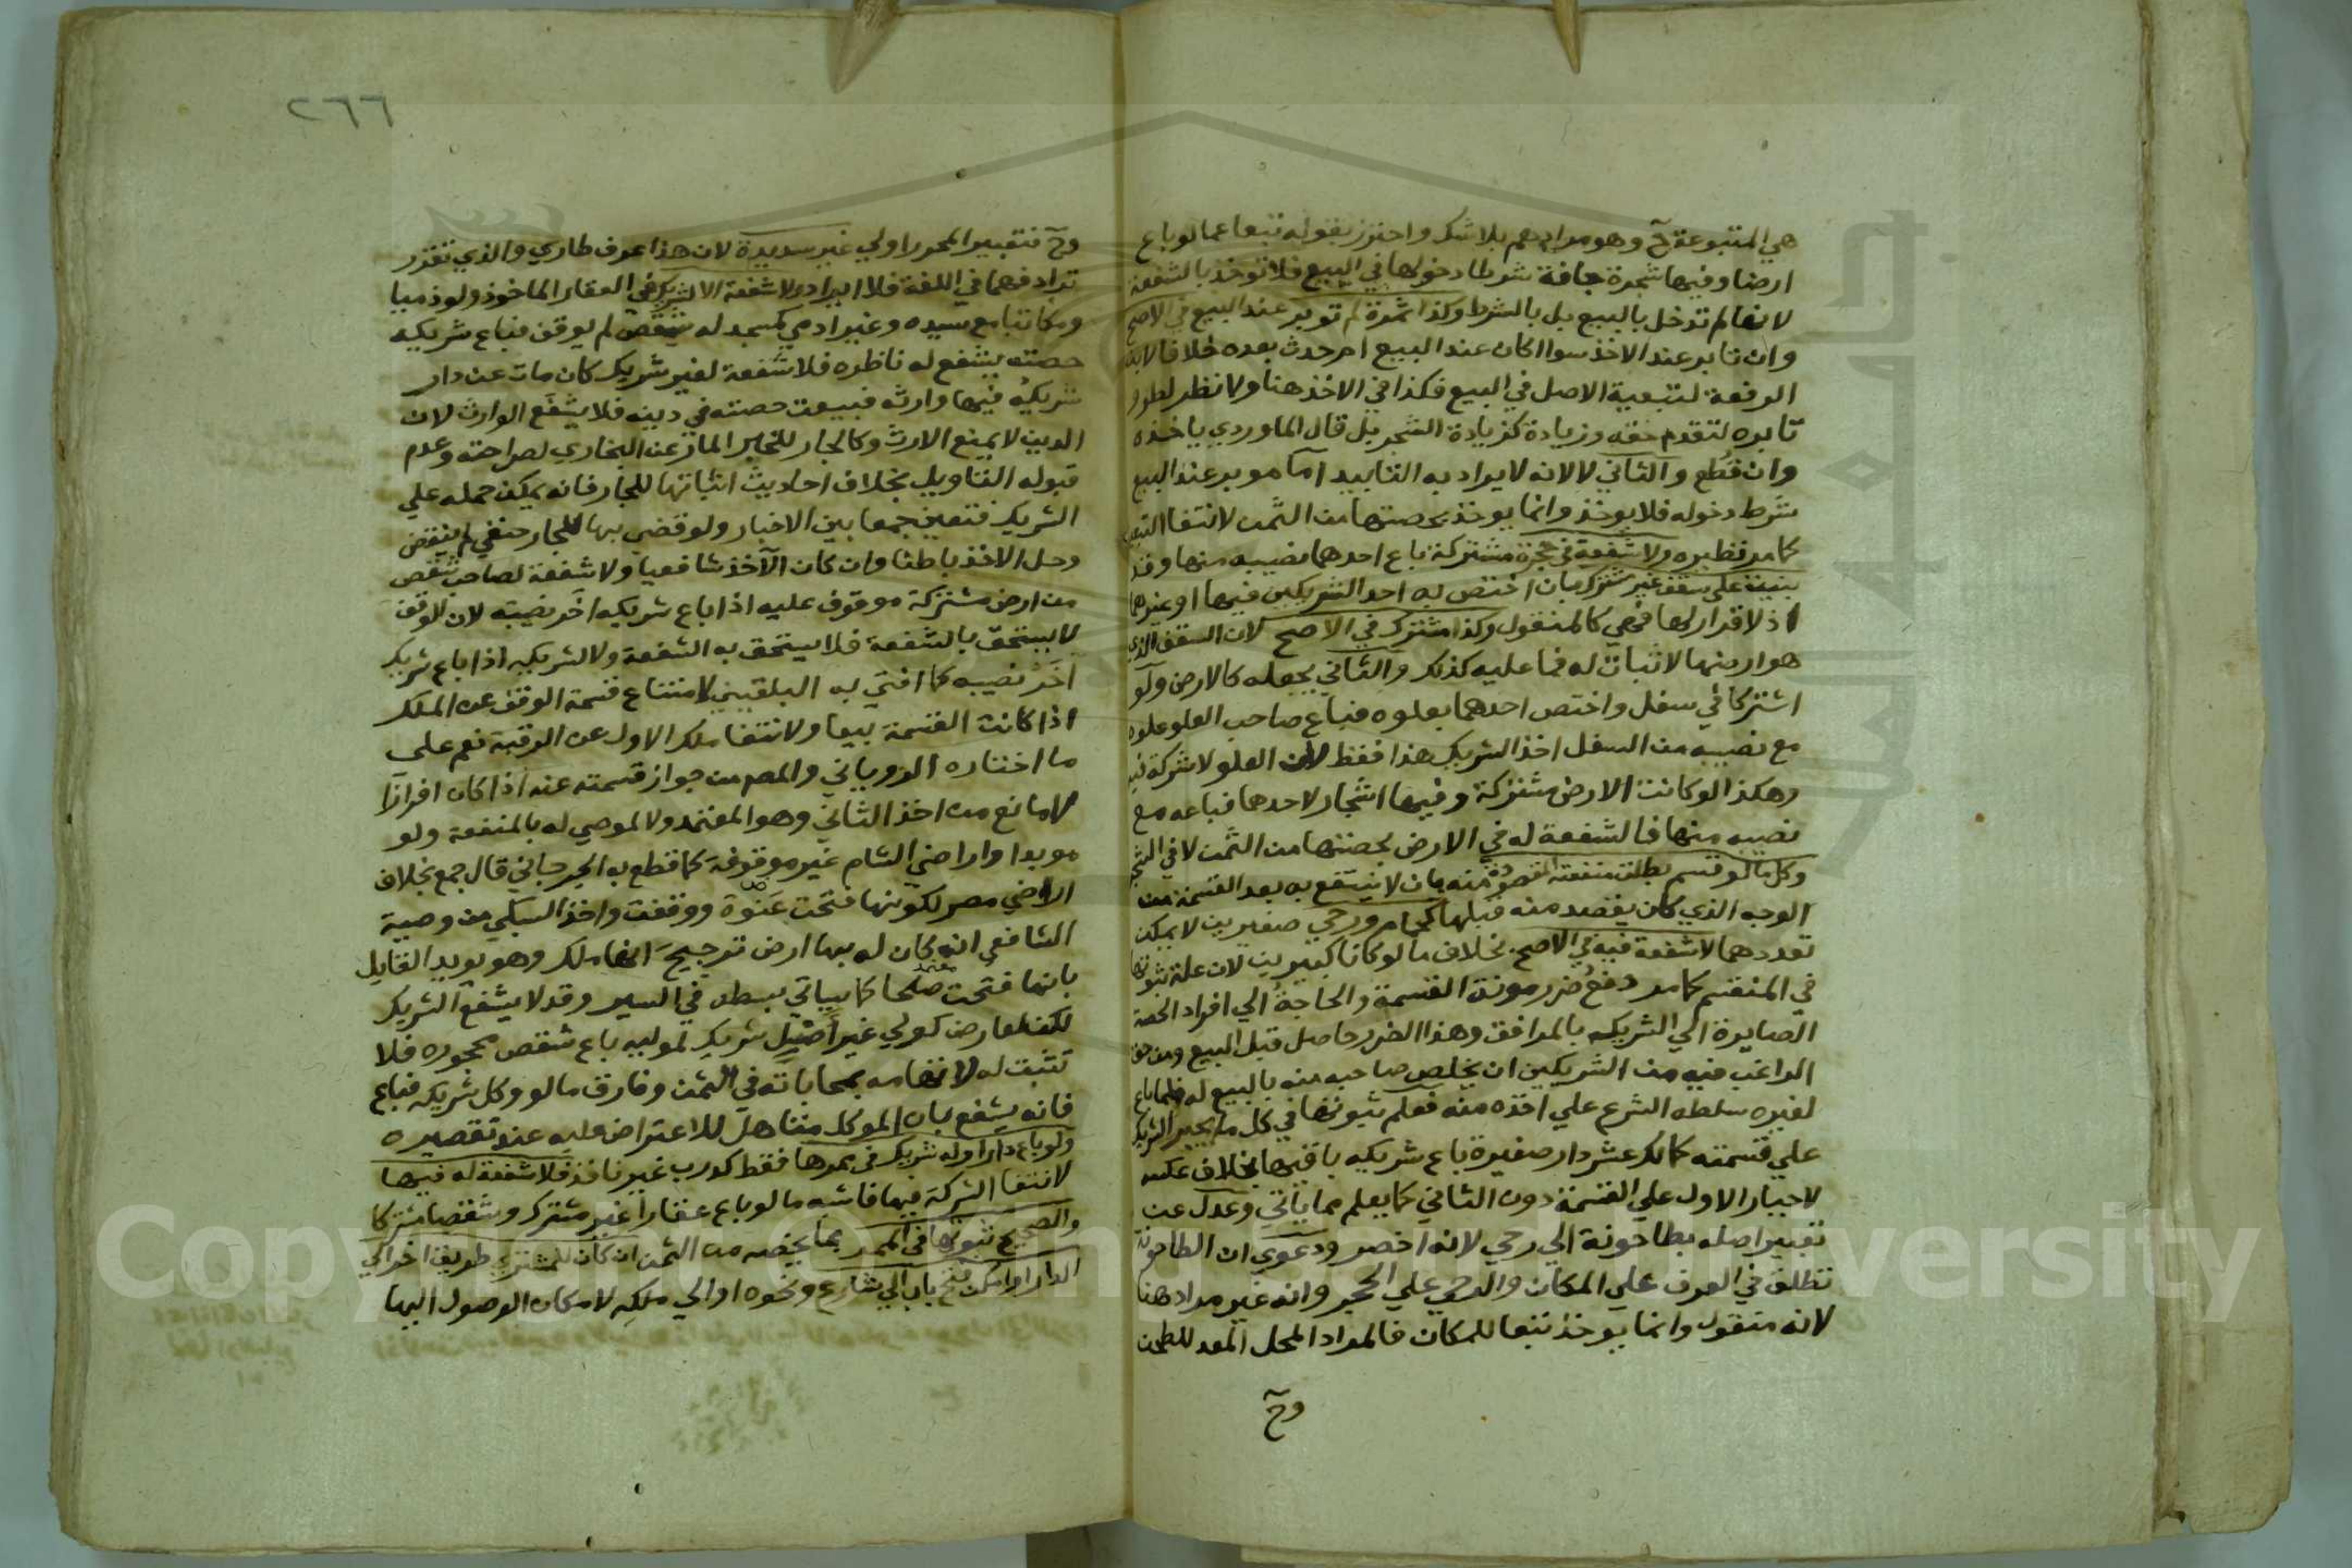 هي المتبوعة ح وهو مرادهم بلا شك واحترز بقوله تبعا عما لو باع
ارضا وفيها شجرة جافة شرطا دخولها في البيع فلا توخذ بالشفعة
لانها لم تدخل بالبيع بل بالشرط وكذا ثمرة لم توبر عند البيع في الاصح
وان تابر عند الاخذ سوا اكان عند البيع ام حدث بعده خلافا لابن
الرفعة لتبعية الاصل في البيع فكذا في الاخذ هنا ولا نظر لطرو
تابره لتقدم حقه وزيادة كزيادة الشجر بل قال الماوردي ياخذه
وان قطع والثاني لا لانه لا يراد به التابيد اما موبر عند البيع
شرط دخوله فلا يوخذ وانما يوخذ بحصتها من الثمن لانتفا التبعية
كما مر نظيره ولا شفعة في حجرة مشتركة باع احدهما نصيبه منها وقد
بنيت على سقف غير مشترك بان اختص به احد الشريكين فيها او غيرهما
اذ لا قرار لها فهي كالمنقول وكذا مشترك في الاصح لان السقف الذي
هو ارضها لا ثبات له فما عليه كذلك والثاني يجعله كالارض ولو
اشتركا في سفل واختص احدهما بعلوه فباع صاحب العلو علوه
مع نصيبه من السفل اخذ الشريك هذا فقط لان العلو لا شركة فيه
وهكذا لو كانت الارض مشتركة وفيها اشجار لاحدهما فباعه مع
نصيبه منها فالشفعة له في الارض بحصتها من الثمن لا في الشجر
وكل ما لو قسم بطلت منفعته المقصودة منه بان لا ينتفع به بعد القسمة من
الوجه الذي كان يقصد منه قبلها كحمام ورحي صغيرين لا يمكن
تعددهما لا شفعة فيه في الاصح بخلاف ما لو كانا كبيرين لان علة ثبوتها
في المنقسم كما مر دفع ضرر مونة القسمة والحاجة الي افراد الحصة
الصايرة الي الشريك بالمرافق وهذا الضرر حاصل قبل البيع ومن حق
الراغب فيه من الشريكين ان يخلص صاحبه منه بالبيع له فلما باع
لغيره سلطه الشرع علي اخذه منه فعلم ثبوتها في كل ما يجبر الشريك
علي قسمته كمالك عشر دار صغيرة باع شريكه باقيها بخلاف عكسه
لاجبار الاول علي القسمة دون الثاني كما يعلم مما ياتي وعدل عن
تعبير اصله بطاحونة الي رحي لانه اخصر ودعوي ان الطاحونة
تطلق في العرف علي المكان والرحي علي الحجر وانه غير مراد هنا
لانه منقول وانما يوخذ تبعا للمكان فالمراد المحل المعد للطحن
وح
٢٦٦
وح فتعبير المحرر اولي غير سديدة لان هذا عرف طاري والذي تقرر
ترادفهما في اللغة فلا ايراد ولا شفعة الا لشريك في العقار الماخوذ ولو ذميا
ومكاتبا مع سيده وغير ادمي كمسجد له شقص لم يوقف فباع شريكه
حصته يشفع له ناظره فلا شفعة لغير شريك كان مات عن دار
شريكه فيها وارثه فبيعت حصته في دينه فلا يشفع الوارث لان
الدين لا يمنع الارث وكالجار للخبر المار عن البخاري لصراحته وعدم
قبوله التاويل بخلاف احاديث اثباتها للجار فانه يمكن حمله علي
الشريك فتعين جمعا بين الاخبار ولو قضي بها للجار حنفي لم ينقض
وحل الاخذ باطنا وان كان الآخذ شافعيا ولا شفعة لصاحب شقص
من ارض مشتركة موقوف عليه اذا باع شريكه اخر نصيبه لان الوقف
لا يستحق بالشفعة فلا يستحق به الشفعة ولا لشريكه اذا باع شريك
اخر نصيبه كما افتي به البلقيني لامتناع قسمة الوقف عن الملك
اذا كانت القسمة بيعا ولانتفا ملك الاول عن الرقبة نعم على
ما اختاره الروياني والمص من جواز قسمته عنه اذا كان افرازا
لا مانع من اخذ الثاني وهو المعتمد ولا لموصي له بالمنفعة ولو
موبدا واراضي الشام غير موقوفة كما قطع به الجرجاني قال جمع بخلاف
اراضي مصر لكونها فتحت عنوة ووقفت واخذ السبكي من وصية
الشافعي انه كان له بها ارض ترجيح انها ملك وهو يويد القايل
بانها فتحت صلحا كما سياتي بسطه في السير وقد لا يشفع الشريك
لكن لعارض كولي غير اصيل شريك لموليه باع شقص محجوره فلا
تثبت له لاتهامه بمحاباته في الثمن وفارق ما لو وكل شريكه فباع
فانه يشفع بان الموكل متاهل للاعتراض عليه عند تقصيره
ولو باع دارا وله شريك في ممرها فقط كدرب غير نافذ فلا شفعة له فيها
لانتفا الشركة فيها فاشبه ما لو باع عقارا غير مشترك وشقصا مشتركا
والصحيح ثبوتها في الممر بما يخصه من الثمن ان كان للمشتري طريق اخر الي
الدار او امكن فتح باب الي شارع ونحوه او الي ملكه لامكان الوصول اليها
Copyright © King Saud University